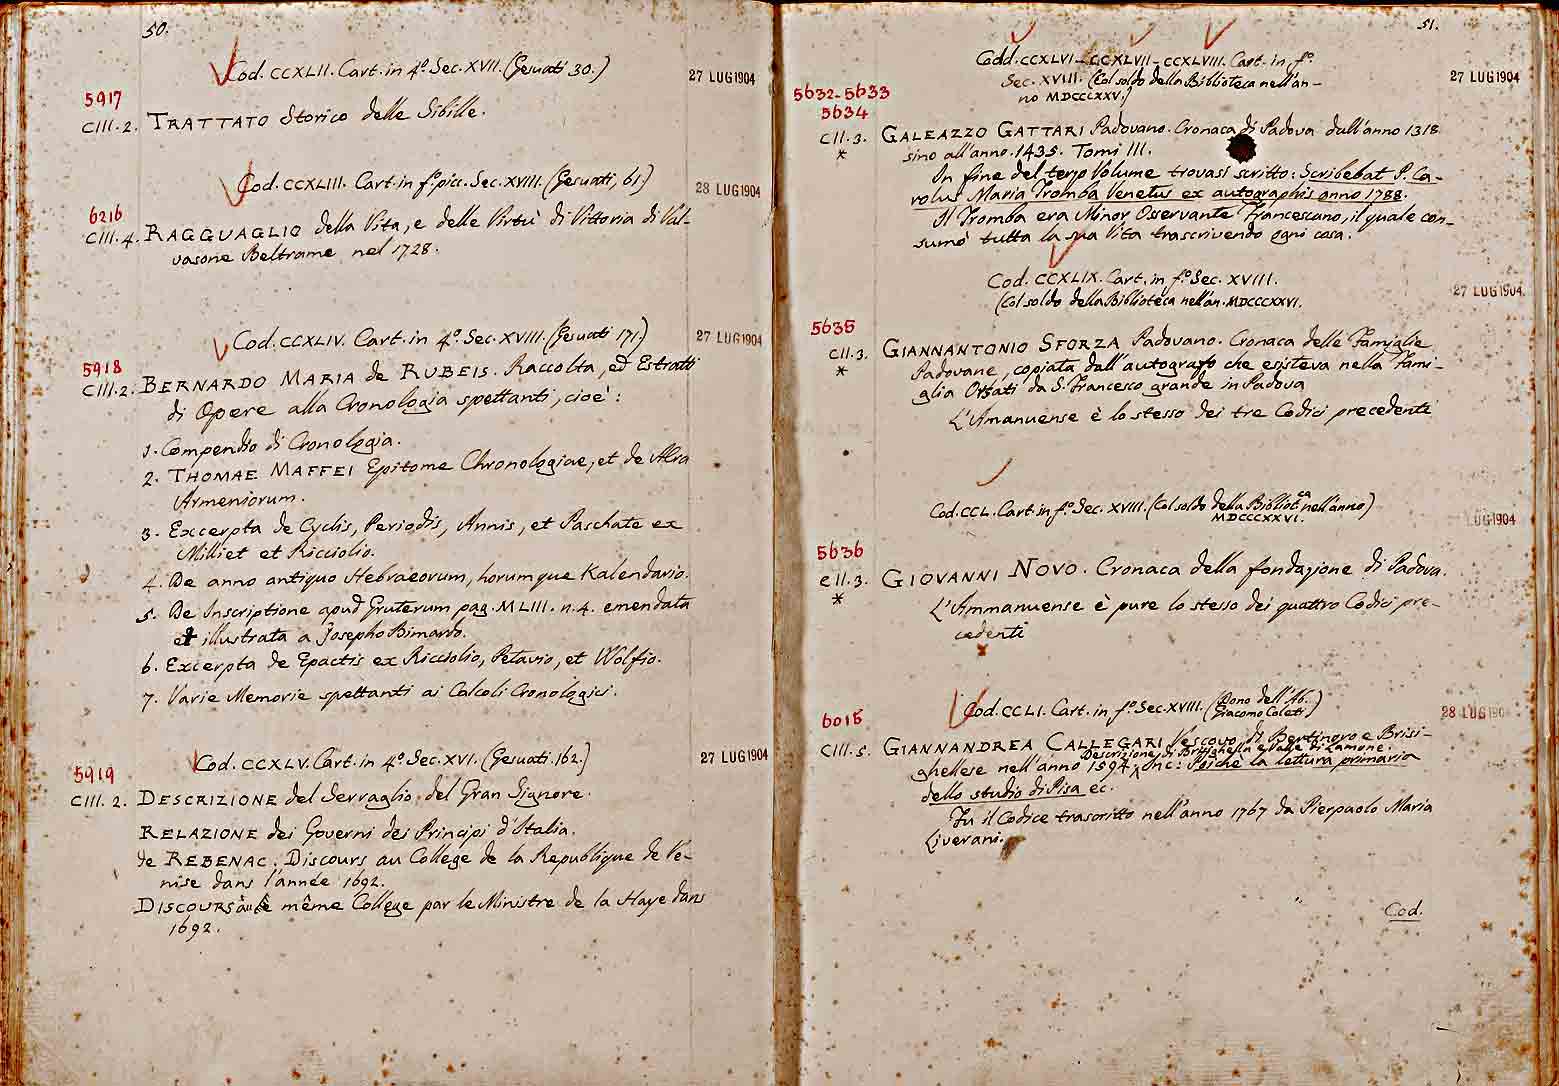 50.
Cod. CCXLII. Cart. in 4º. Sec. XVII. (Gesuati 30.)
27 LUG 1904
5917
CIII. 2. TRATTATO Storico delle Sibille.
Cod. CCXLIII. Cart. in fº. picc. Sec. XVIII. (Gesuati, 61.)
28 LUG 1904
6216
CIII. 4. RAGGUAGLIO della Vita, e delle Virtù di Vittoria di Val-
vasone Beltrame nel 1728.
Cod. CCXLIV. Cart. in 4º. Sec. XVIII. (Gesuati 171.)
27 LUG 1904
5918
CIII. 2. BERNARDO MARIA de RUBEIS. Raccolta, ed Estratti
di Opere alla Cronologia spettanti, cioè:
1. Compendio di Cronologia.
2. THOMAE MAFFEI Epitome Chronologiae, et de Aera
Armeniorum.
3. Excerpta de Cyclis, Periodis, Annis, et Paschate ex
Milliet et Ricciolio.
4. De anno antiquo Hebraeorum, horumque Kalendario.
5. De Inscriptione apud Gruterum pag. MLIII. n. 4. emendata
et illustrata a Josepho Bimardo.
6. Excerpta de Epactis ex Ricciolio, Petavio, et Wolfio.
7. Varie Memorie spettanti ai Calcoli Cronologici.
Cod. CCXLV. Cart. in 4º. Sec. XVI. (Gesuati. 162.)
27 LUG 1904
5919
CIII. 2. DESCRIZIONE del Serraglio del Gran Signore.
RELAZIONE dei Governi dei Principi d'Italia.
de REBENAC. Discours au College de la Republique de Ve-
nise dans l'année 1692.
DISCOURS au même College par le Ministre de la Haye dans
1692.
51.
Codd. CCXLVI - CCXLVII - CCXLVIII. Cart. in fº.
Sec. XVIII. (Col soldo della Biblioteca nell'an-
no MDCCCXXV.)
27 LUG 1904
5632-5633
5634
CII. 3. GALEAZZO GATTARI Padovano. Cronaca di Padova dall'anno 1318
* sino all'anno 1435. Tomi III.
In fine del terzo Volume trovasi scritto: Scribebat P. Ca-
rolus Maria Tromba Venetus ex autographis anno 1788.
Il Tromba era Minor Osservante Francescano, il quale con-
sumò tutta la sua Vita trascrivendo ogni cosa.
Cod. CCXLIX. Cart. in fº. Sec. XVIII.
(Col soldo della Biblioteca nell'an. MDCCCXXVI.
27 LUG 1904
5635
CII. 3. GIANNANTONIO SFORZA Padovano. Cronaca delle Famiglie
* Padovane, copiata dall'autografo che esisteva nella Fami-
glia Orsati da S. Francesco grande in Padova
L'Amanuense è lo stesso dei tre Codici precedenti
Cod. CCL. Cart in fº. Sec. XVIII. (Col soldo della Bibliotca nell'anno)
MDCCCXXVI.
LUG 1904
5636
CII. 3. GIOVANNI NOVO. Cronaca della fondazione di Padova.
* L'Ammanuense è pure lo stesso dei quattro Codici pre-
cedenti
Cod. CCLI. Cart. in fº. Sec. XVIII. (Dono dell'Ab.
Giacomo Coleti.)
28 LUG 1904
6015
CIII. 5. GIANNANDREA CALLEGARI Vescovo di Bertinoro e Brisi-
Descrizione di Brisighella e Valle di Lamone.
ghellese nell'anno 1594. Inc: Poichè la lettura primaria
dello studio di Pisa ec.
Fu il Codice trascritto nell'anno 1767 da Pierpaolo Maria
Liverani.
Cod.